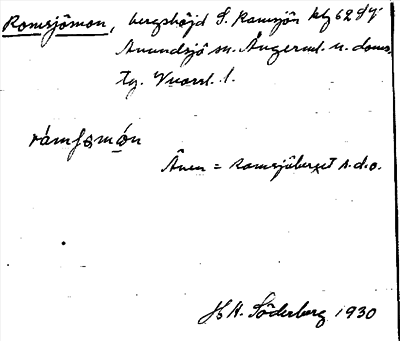 Romsjömon, bergshöjd S. Romsjön kbl 62 SV
Anundsjö sn. Ångerml. n. doms.
tg. Vnorrl. l.
råmsomón
Även = Romsjöberget s.d.o.
H. H. Söderberg 1930